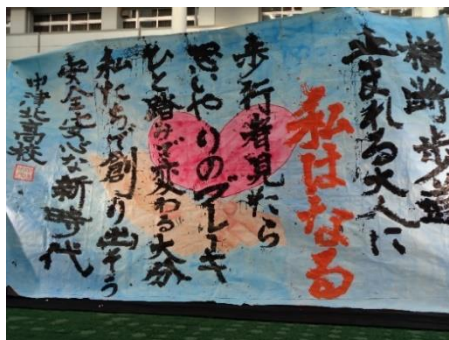 横断歩道
止まれる大人に
私はなる
歩行者見たら
思いやりのブレーキ
ひと踏みで変わる大分
私たちで創り出そう
安全安心な新時代
中津北高校